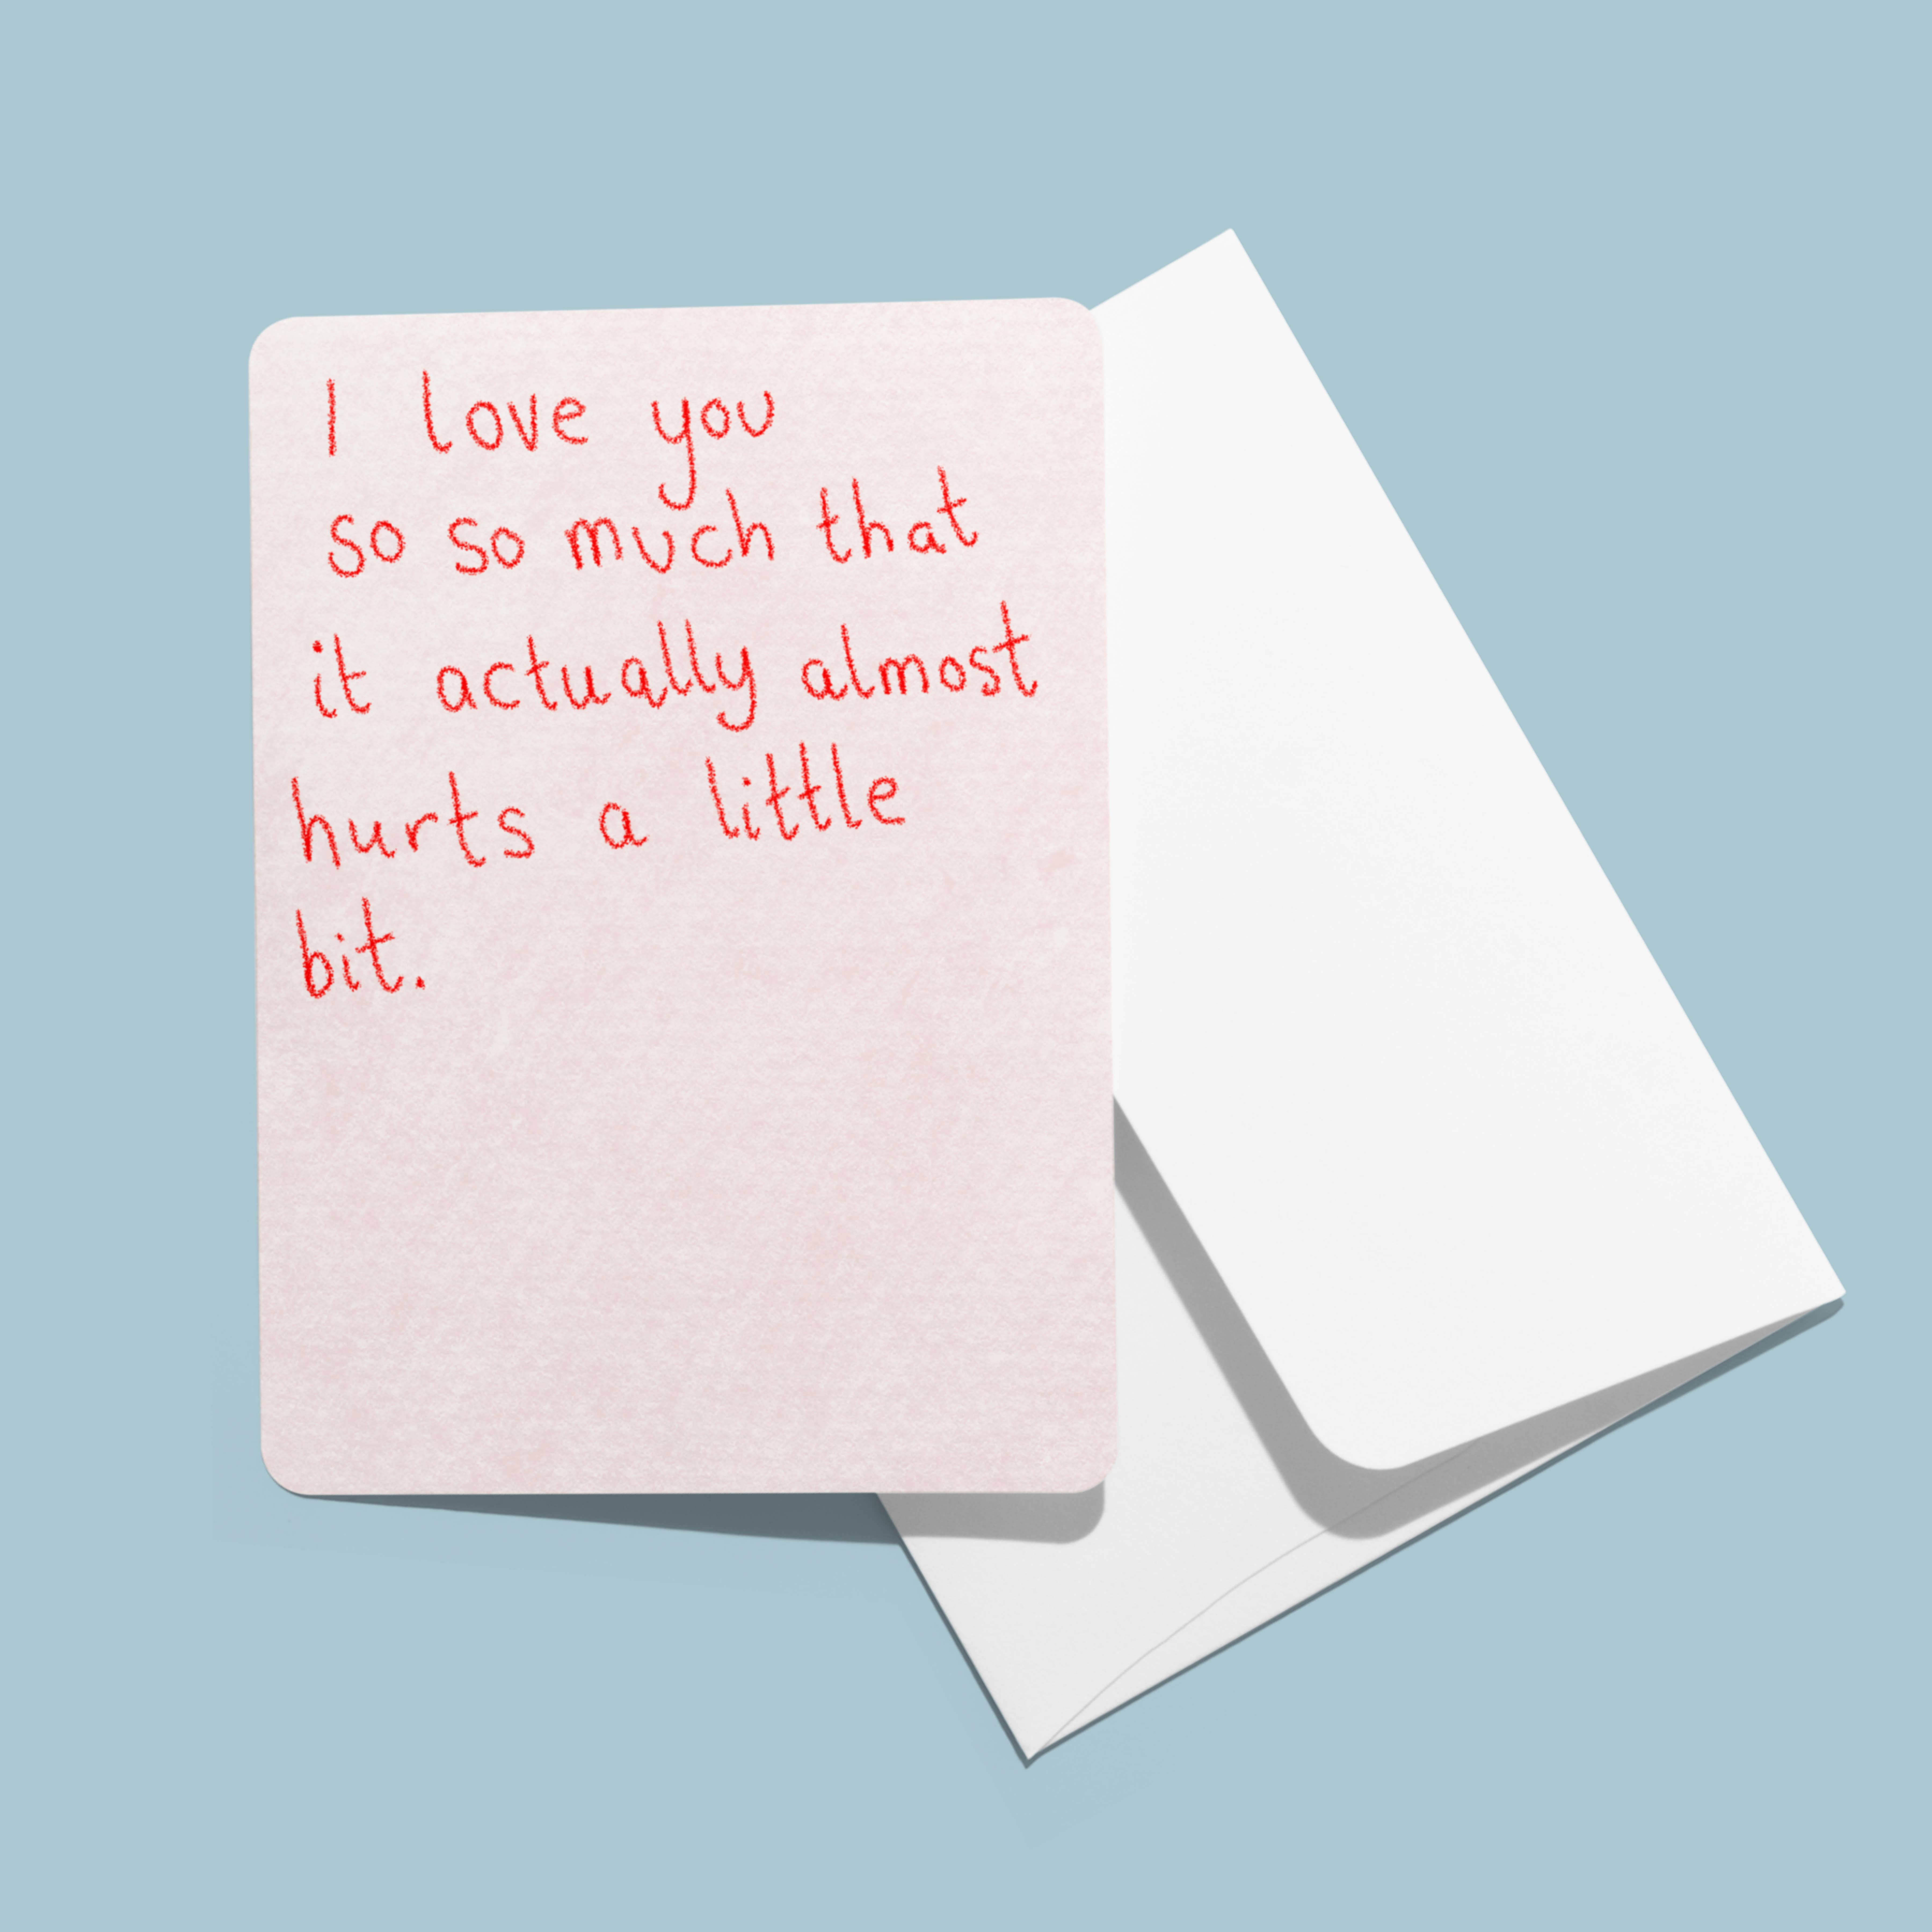 I love you
so so much that
it actually almost
hurts a little
bit.